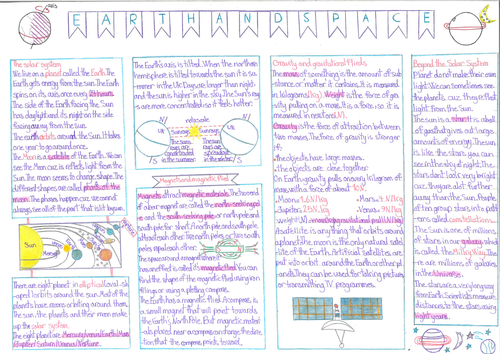 EARTH AND SPACE
The solar system
We live on a planet called the Earth. The
Earth gets energy from the Sun. The Earth
spins on its axis once every 24 hours.
The side of the Earth facing the Sun
has daylight and its night on the side
facing away from the sun.
The earth orbits around the Sun. It takes
one year to go around once.
The Moon is a satellite of the Earth. We can
see the Moon cuz it reflects light from the
Sun. The moon seems to change shape. The
different shapes are called phases of the
moon. The phases happen cuz we cannot
always see all of the part that is lit
Sun
There are eight planet in elliptical oval-sh-
aped orbits around the sun. Most of the
planets have moons orbiting around them.
The sun, the planets and their moons make
up the solar system.
The eight planet are: Mercury/Venus/Earth/Mars
/Jupiter/Saturn/Uranus/Neptune.
The Earth's axis is tilted. When the northern
hemisphere is tilted towards the sun it is su-
mmer in the UK. Days are longer than night
and the sun is higher in the sky. The Sun's rays
are more concentrated so it feels hotter.
N
UK
Sun rays
The Sun's
rays are
spread out
in the summer
S
N
UK
The Sun's
rays are
spread out
in the winter
S
Magnets and magnetic field
Magnets attract magnetic materials. The two end
of a bar magnet are called the north-seeking pole
and the south-seeking pole or north pole and
south pole for short. A north and a south pole
attract each other. Two north poles or two south
poles repel each other.
The space around a magnet where it
has an effect is called its magnetic field. You can
find the shape of the magnetic field using iron
filings or using a plotting compass.
The Earth has a magnetic field. A compass is
a small magnet that will point towards
the Earth's North Pole. But magnetic mater-
ials placed near a compass can change the direc-
tion that the compass points toward.
Gravity and gravitational fields
The mass of something is the amount of sub-
stance or matter it contains. It is measured
in kilograms (kg). Weight is the force of gra-
vity pulling on a mass. It is a force so it is
measured in newtons (N).
Gravity is the force of attraction between
two masses. The force of gravity is stronger
if:
the objects have large masses.
the objects are close together.
On Earth gravity pulls on every kilogram of
mass with a force of about 10N.
Moon = 1.6N/kg
Jupiter = 25N/kg
A satellite is anything that orbits around
a planet. The moon is the only natural satel-
lite of the Earth. Artificial satellites are
put into orbit around the Earth or other pl-
anets. They can be used for taking pictures
or transmitting TV programmes.
Beyond the Solar System
Planet do not make their own
light. We can sometimes see
the planets cuz they reflect
light from the Sun.
The sun is a star. It is a ball
of gas that gives out large
amounts of energy. The sun
is like the stars you can
see in the sky at night. The
stars don't look very bright
cuz they are a lot further
away than the Sun. People
often group stars into patterns
called constellations.
The Sun is one of millions
of stars in our galaxy which
is called the Milky Way. There
are millions of galaxies in
the Universe.
The stars are a very long way
from Earth. Scientists measure
distances to the stars using
light years.